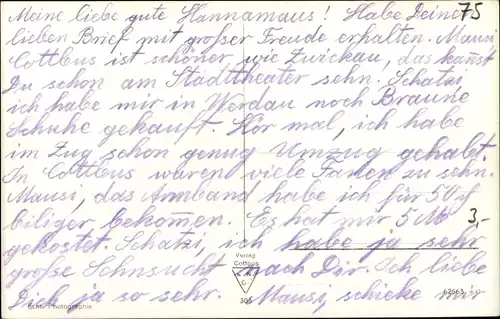 Meine liebe gute Hannamaus! Habe Deine 75
lieben Brief mit großer Freude erhalten. Mausi
Cottbus ist schöner wie Zwickau, das kannst
Du schon am Stadttheater sehn. Schatzi
ich habe mir in Werdau noch Braune
Schuhe gekauft. Hör mal, ich habe
im Zug schon genug Umzug gehabt.
In Cottbus waren viele Farien zu sehn.
Mausi, das Armband habe ich für 50 ₰
biliger bekommen. Es hat mir 5 M 3,-
gekostet. Schatzi, ich habe ja sehr
große Sehnsucht nach Dir. Ich liebe
Dich ja so sehr. Mausi, schicke mir
Verlag
Cottbus
305
Echte Photographie
62563